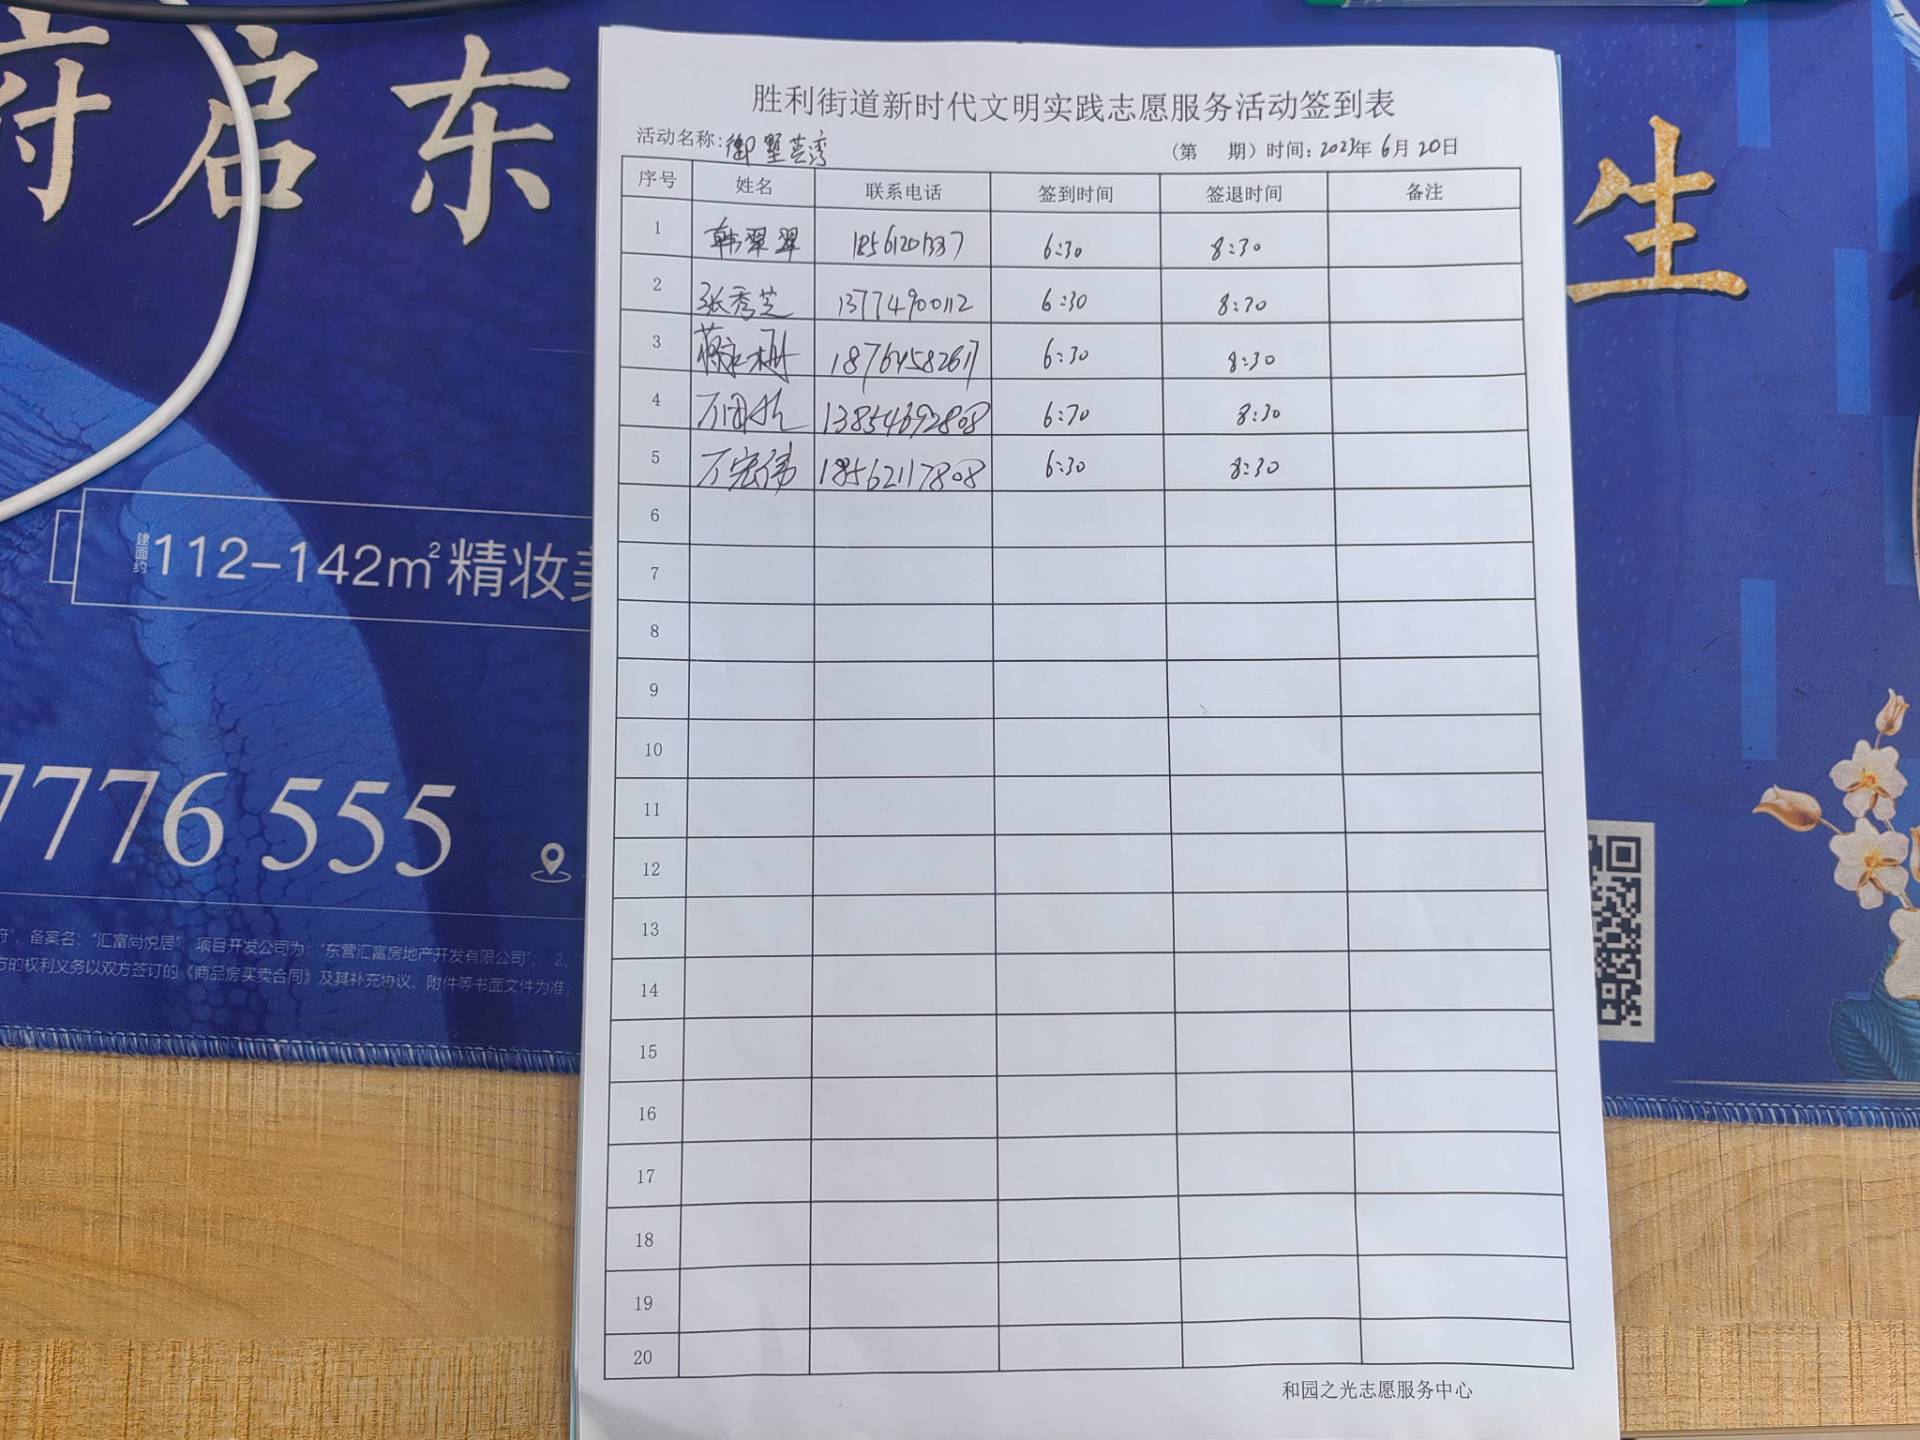 府启东
生
建面约112-142m²精妆
7776 555
备案名：“汇富尚悦居”，项目开发公司为：“东营汇富房地产开发有限公司”； 2、
方的权利义务以双方签订的《商品房买卖合同》及其补充协议、附件等书面文件为准，
胜利街道新时代文明实践志愿服务活动签到表
活动名称：御墅芸湾 （第 期）时间：2023年 6月 20日
序号 姓名 联系电话 签到时间 签退时间 备注
1 韩翠翠 18561201337 6:30 8:30
2 张秀芝 13774900112 6:30 8:30
3 18764582617 6:30 8:30
4 13854692808 6:30 8:30
5 万宏伟 18562117808 6:30 8:30
6
7
8
9
10
11
12
13
14
15
16
17
18
19
20
和园之光志愿服务中心